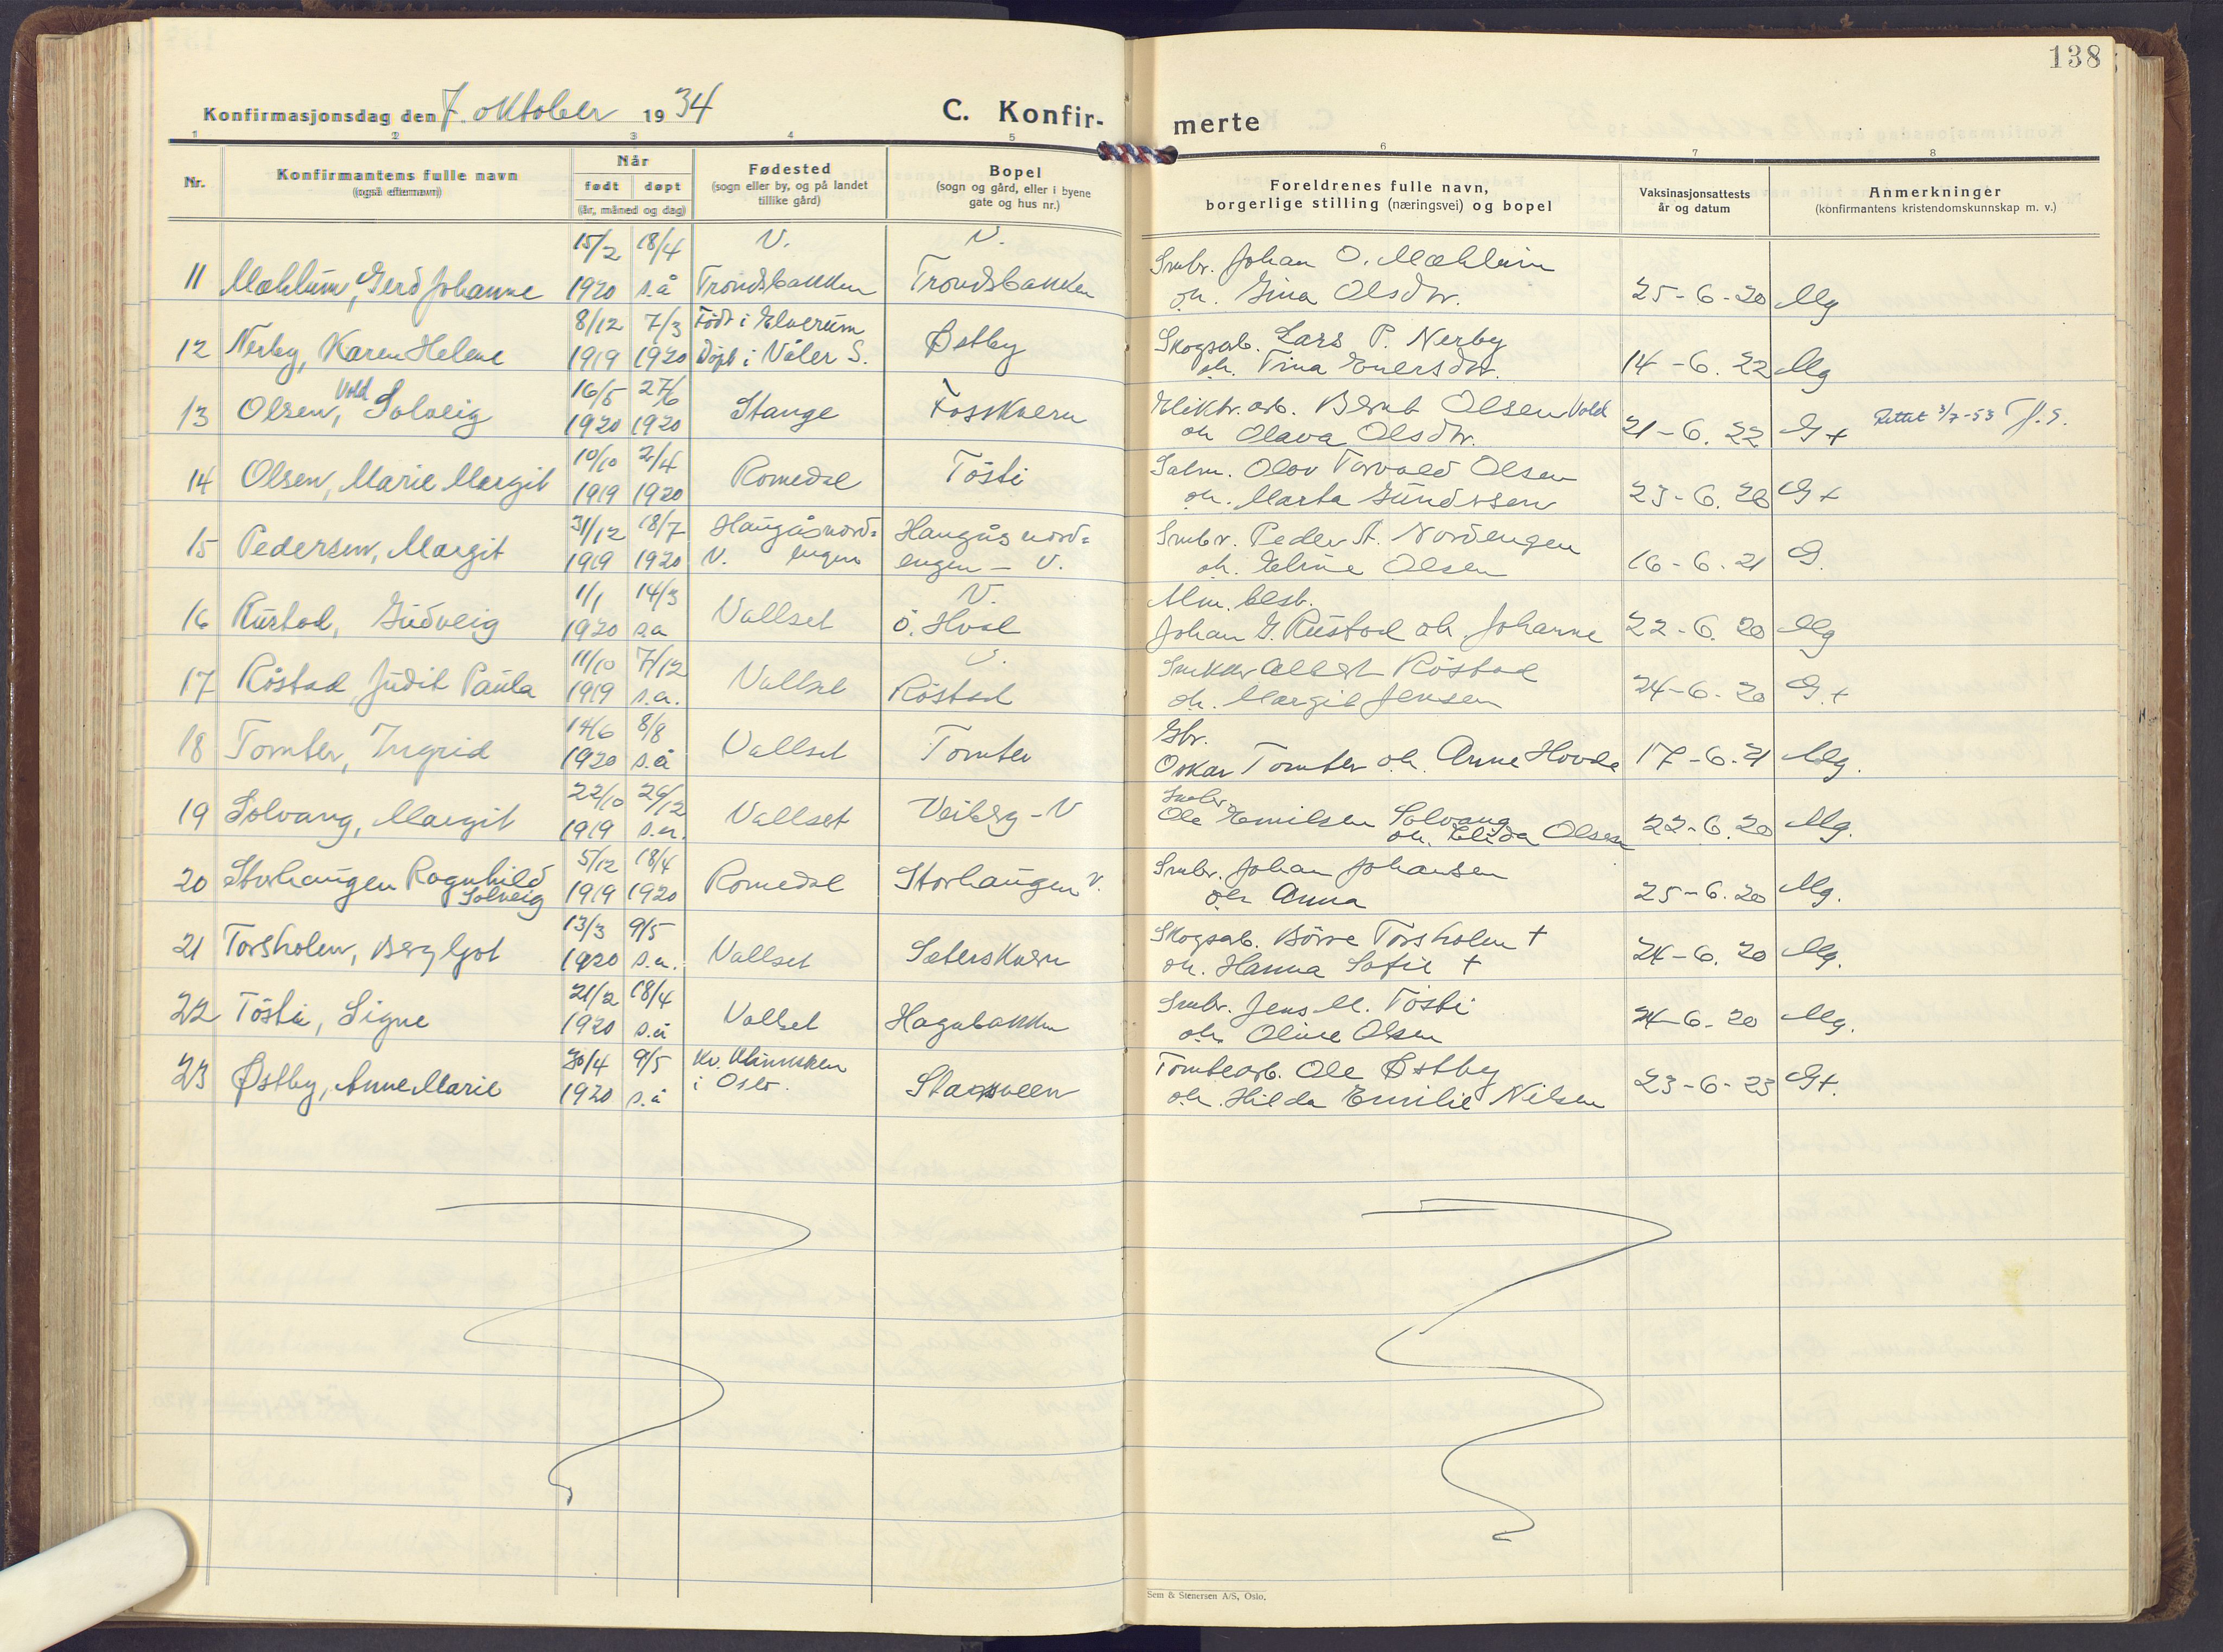 138
Konfirmasjonsdag den 7. oktober 1934
C. Konfir-
merte
1 2 3 4 5 6 7 8
Nr.
Konfirmantens fulle navn
(også efternavn)
Når
født døpt
(år, måned og dag)
Fødested
(sogn eller by, og på landet
tillike gård)
Bopel
(sogn og gård, eller i byene
gate og hus nr.)
Foreldrenes fulle navn,
borgerlige stilling (næringsvei) og bopel
Vaksinasjonsattests
år og datum
Anmerkninger
(konfirmantens kristendomskunnskap m. v.)
15/2 18/4 V. V. Smbr. Johan O. Mæhlum
11 Mæhlum, Gerd Johanne 1920 s.å Trondsbakken Trondsbakken oh. Gina Olsdtr. 25-6-20 Mg
8/12 7/3 Født i Elverum Skogsarb. Lars P. Nerby
12 Nerby, Karen Helene 1919 1920 Døpt i Våler S. Østby oh. Tina Enersdtr. 14-6.22 Mg
Vold 16/5 27/6 Elektr. arb. Bernt Olsen Vold
13 Olsen, Solveig 1920 1920 Stange Fosskvern oh Olava Olsdtr. 21-6.22 G+ Rettet 3/7-53
10/10 2/4 Salm. Olav Torvald Olsen
14 Olsen, Marie Margit 1919 1920 Romedal Tösti oh. Marta Gundersen 23-6.20 G+
31/12 18/7 Haugåsnord= Haugåsnord= Smbr. Peder A. Nordengen
15 Pedersen, Margit 1919 1920 V. engen engen - V. oh. Eline Olsen 16-6-21 G.
1/1 14/3 V. Alm. best.
16 Rustad, Gudveig 1920 s.a Vallset ö. Hval Johan G. Rustad oh. Johanne 22-6.20 Mg
11/10 7/12 V. Snekker Albert Röstad
17 Röstad, Judit Paula 1919 s.a. Vallset Röstad oh. Margit Jensen 24-6-20 G.+
14/6 8/8 Gbr.
18 Tomter, Ingrid 1920 s.å Vallset Tomter Oskar Tomter oh. Anne Hovde 17-6-21 Mg.
22/10 26/12 Smbr.
19 Solvang, Margit 1919 s.a. Vallset Veiberg - V Ole Emilsen Solvang oh. Elida Olsen 22-6.20 Mg.
5/12 18/4 Smbr. Johan Johansen
20 Storhaugen Ragnhild Solveig 1919 1920 Romedal Storhaugen V. oh Anna 25-6.20 Mg.
13/3 9/5 Skogsarb. Börre Torsholen +
21 Torsholen, Bergljot 1920 s.a. Vallset Sæterskvern oh. Hanna Sofie + 24-6.20 Mg.
21/2 18/4 Smbr. Jens M. Tösti
22 Tösti, Signe 1920 s.å Vallset Hagabakken oh. Oline Olsen 24-6-20 Mg.
30/4 9/5 Kv. klinikken Tomtearb. Ole Østby
23 Østby, Anne Marie 1920 s.å i Oslo. oh. Hilda Emilie Nilsen 23-6-23 G+.
Sem & Stenersen A/S, Oslo.